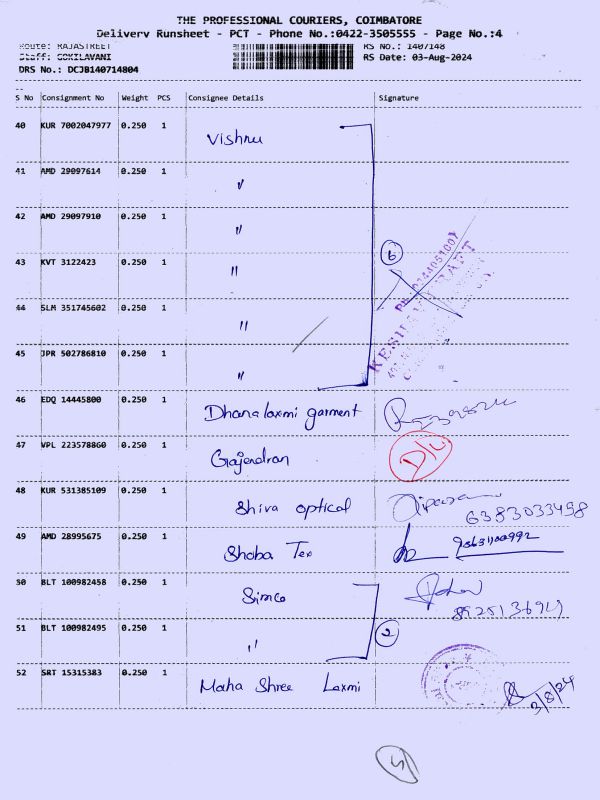 THE PROFESSIONAL COURIERS, COIMBATORE
Delivery Runsheet - PCT - Phone No.:0422-3505555 - Page No.:4
Route: RAJASTREET
RS No.: 1407148
Staff: GOKILAVANI
RS Date: 03-Aug-2024
DRS No.: DCJB140714804
S No Consignment No Weight PCS Consignee Details Signature
40 KUR 7002047977 0.250 1 Vishnu
41 AMD 29097614 0.250 1 "
42 AMD 29097910 0.250 1 "
43 KVT 3122423 0.250 1 " 6
44 SLM 351745602 0.250 1 "
45 JPR 502786810 0.250 1 "
46 EDQ 14445800 0.250 1 Dhanalaxmi garment
47 VPL 223578860 0.250 1 Gajendran D/L
48 KUR 531385109 0.250 1 Shiva optical
6383033498
49 AMD 28995675 0.250 1 Shoba Tex
50 BLT 100982458 0.250 1 Simco
51 BLT 100982495 0.250 1 " 2
52 SRT 15315383 0.250 1 Maha Shree Laxmi
3/8/24